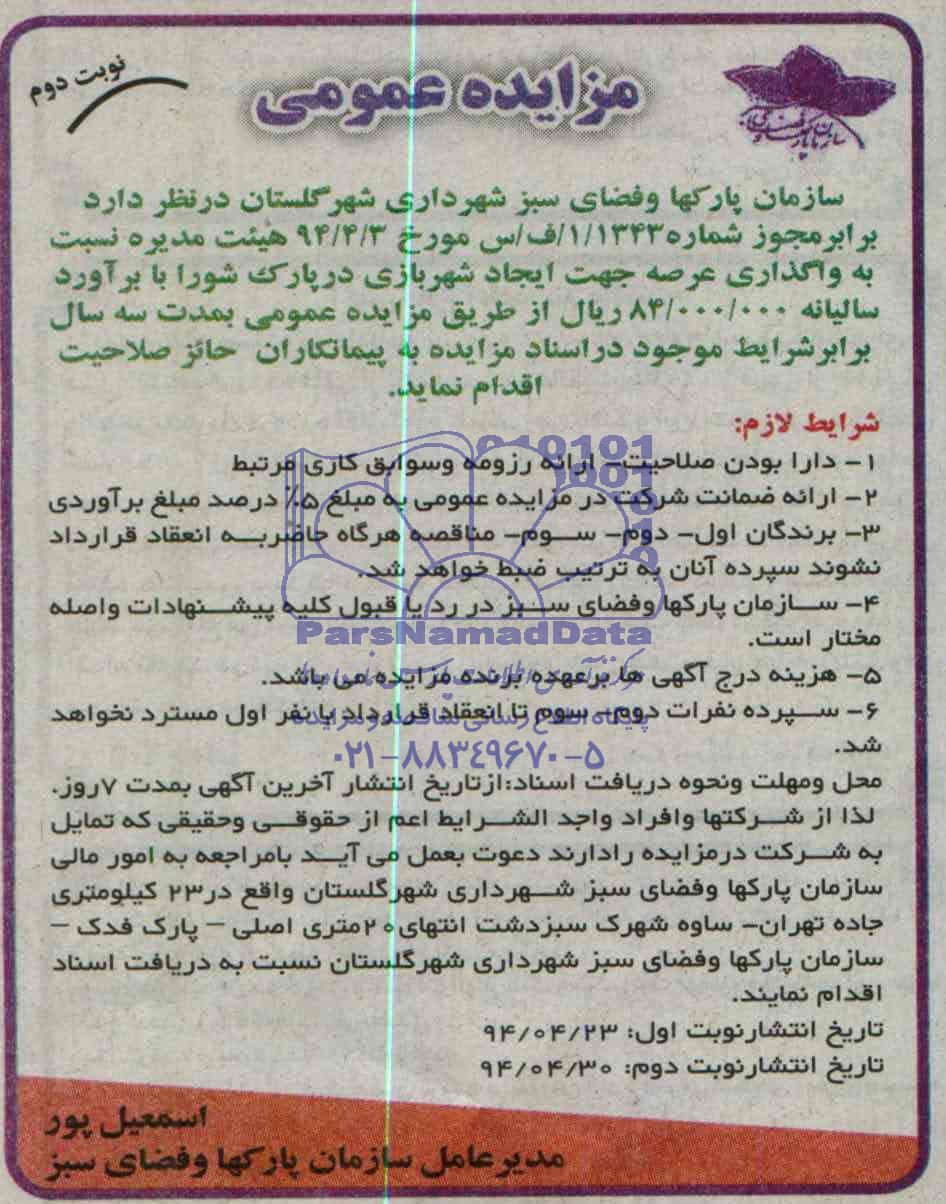 نوبت دوم
مزایده عمومی
سازمان پارکها وفضای سبز شهرداری شهرگلستان درنظر دارد
برابرمجوز شماره ۱/۱۳۴۳/ف/س مورخ ۹۴/۴/۳ هیئت مدیره نسبت
به واگذاری عرصه جهت ایجاد شهربازی درپارک شورا با برآورد
سالیانه ۸۴/۰۰۰/۰۰۰ ریال از طریق مزایده عمومی بمدت سه سال
برابرشرایط موجود دراسناد مزایده به پیمانکاران حائز صلاحیت
اقدام نماید.
شرایط لازم:
۱- دارا بودن صلاحیت- ارائه رزومه وسوابق کاری مرتبط
۲- ارائه ضمانت شرکت در مزایده عمومی به مبلغ ۵٪ درصد مبلغ برآوردی
۳- برندگان اول- دوم- سوم- مناقصه هرگاه حاضربه انعقاد قرارداد
نشوند سپرده آنان به ترتیب ضبط خواهد شد.
۴- سازمان پارکها وفضای سبز در رد یا قبول کلیه پیشنهادات واصله
مختار است.
ParsNamadData
۵- هزینه درج آگهی ها برعهده برنده مزایده می باشد.
۶- سپرده نفرات دوم- سوم تا انعقاد قرارداد با نفر اول مسترد نخواهد
شد.
۰۲۱-۸۸۳۴۹۶۷۰-۵
محل ومهلت ونحوه دریافت اسناد:ازتاریخ انتشار آخرین آگهی بمدت ۷روز.
لذا از شرکتها وافراد واجد الشرایط اعم از حقوقی وحقیقی که تمایل
به شرکت درمزایده رادارند دعوت بعمل می آید بامراجعه به امور مالی
سازمان پارکها وفضای سبز شهرداری شهرگلستان واقع در۲۳ کیلومتری
جاده تهران- ساوه شهرک سبزدشت انتهای ۲۰متری اصلی – پارک فدک –
سازمان پارکها وفضای سبز شهرداری شهرگلستان نسبت به دریافت اسناد
اقدام نمایند.
تاریخ انتشارنوبت اول: ۹۴/۰۴/۲۳
تاریخ انتشارنوبت دوم: ۹۴/۰۴/۳۰
اسمعیل پور
مدیرعامل سازمان پارکها وفضای سبز